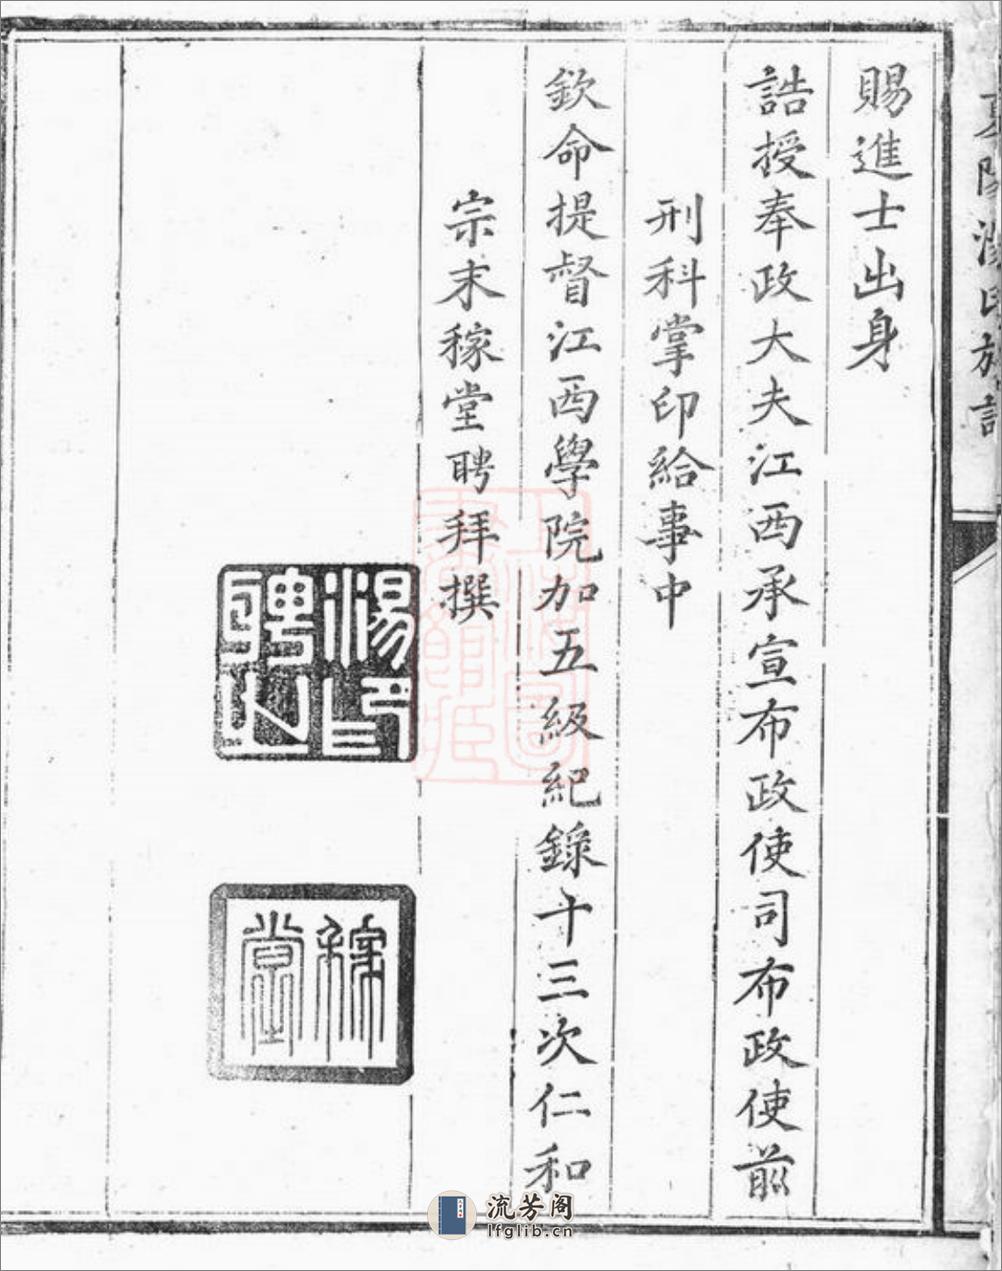 賜進士出身
誥授奉政大夫江西承宣布政使司布政使前
刑科掌印給事中
欽命提督江西學院加五級紀錄十三次仁和
宗末稼堂聘拜撰
湯聘之印
稼堂
流芳阁
lfglib.cn